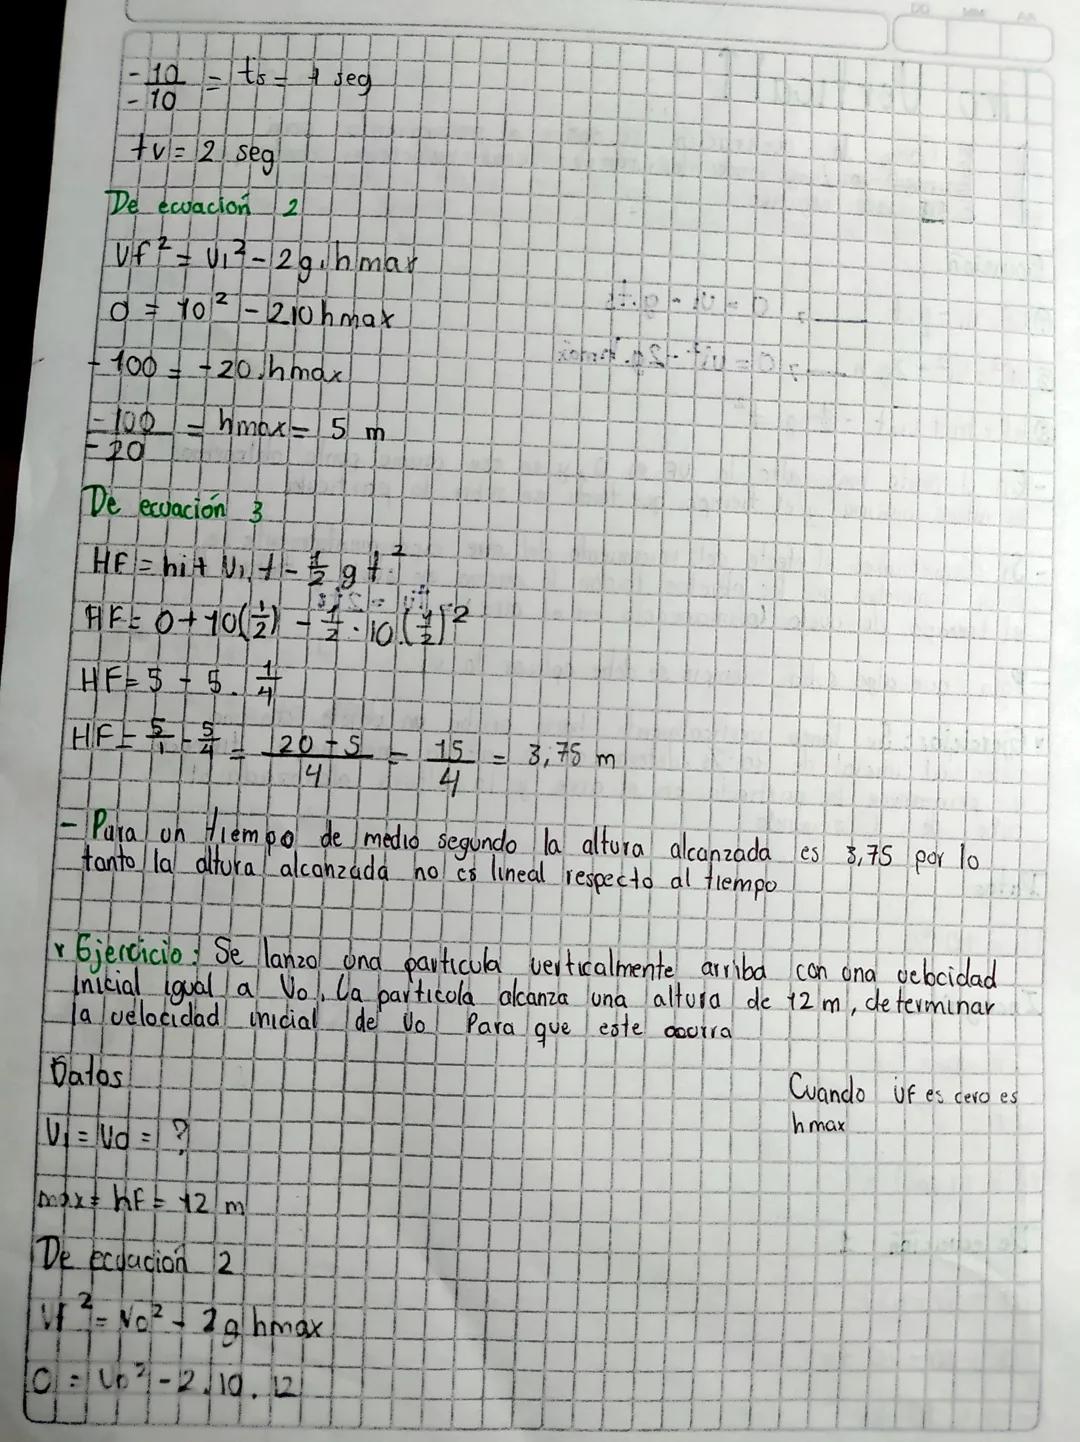 -10/-10 = ts = 1 seg
tv = 2 seg
De ecuación 2
Vf² = Vi² - 2g.hmax
0 = 10² - 2.10 hmax
-100 = -20.hmax
-100/-20 = hmax = 5 m
De ecuación 3
HF = hi + Vi.t - 1/2 g t²
HF = 0 + 10(1/2) - 1/2 . 10.(1/2)²
HF = 5 - 5 . 1/4
HF = 5/1 - 5/4 = 20 - 5/4 = 15/4 = 3,75 m
- Para un tiempo de medio segundo la altura alcanzada es 3,75 por lo
tanto la altura alcanzada no es lineal respecto al tiempo
Ejercicio: Se lanzo una particula verticalmente arriba con una velocidad
inicial igual a Vo. La particola alcanza una altura de 12 m, determinar
la velocidad inicial de Vo Para que este ocurra
Datos
Cuando VF es cero es
hmax
Vi = Vo = ?
max = hF = 12 m
De ecuación 2
Vf² = Vo² - 2g hmax
0 = Vo² - 2.10.12